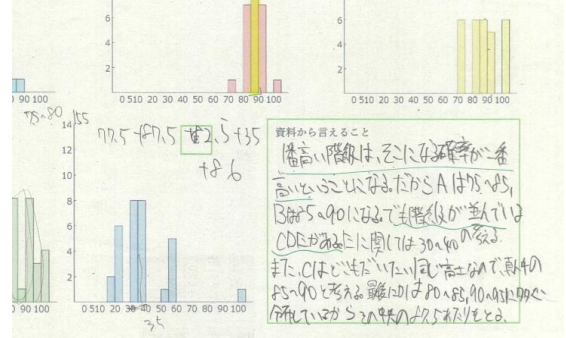 6
4
2
0 510 20 30 40 50 60 70 80 90 100
6
4
2
0 510 20 30 40 50 60 70 80 90 100
90 100
75~80
155
77.5+87.5
2.5+35
+86
14
12
10
8
6
4
2
0 510 20 30 40 50 60 70 80 90 100
35
80 90 100
資料から言えること
1番高い階級は、そこになる確率が一番
高いということになる。だからAは75~85,
Bは85~90になる。でも階級が並んでいる
CDEがある。Eに関しては30~40
考える。
また、Cはどこもだいたい同じ高さなので、真ん中の
85~90と考える。最後にDは80~85, 90~95に
分布しているから
もとる。